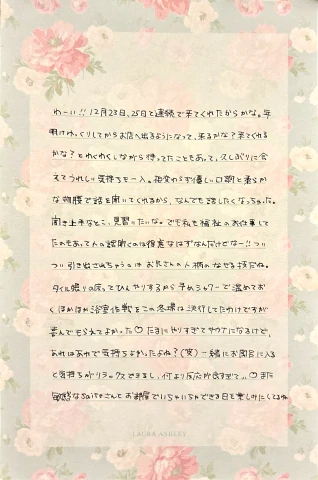 わーい!! 12月23日、25日と連続で来てくれたからかな。年
明けゆっくりしてからお店へ出るようになって、来るかな?来てくれる
かな?とわくわくしながら待ってたこともあって、久しぶりに会
えてうれしい気持ちも一入。相変わらず優しい口調と柔らか
な物腰で話を聞いてくれるから、なんでも話したくなっちゃった。
聞き上手なとこ、見習いたいな。でも私も福祉のお仕事して
たのもあって人の話聞くのは得意なはずなんだけどなー!!つい
つい引き出されちゃうのはお兄さんの人柄のなせる技だね。
タイル張りの床ってひんやりするから予めシャワーで温めてお
くほかほか浴室作戦をこの冬場は決行してたわけですが
喜んでもらえてよかった♡たまにやりすぎてサウナになるけど、
あれはあれで気持ちよかったよね?(笑)一緒にお風呂に入る
と気持ちがリラックスできるし、何より反応が良すぎて…♡また
敏感なsaitoさんとお部屋でいちゃいちゃできる日を楽しみにしてるね
LAURA ASHLEY